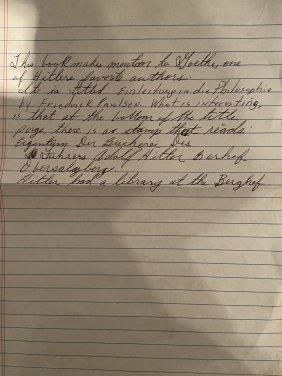 This book makes mention to Goethe, one
of Hitlers favorite authors.
It is titled Einleitung in die Philosophie
by Friedrick Paulsen. What is interesting,
is that at the bottom of the title
page, there is as stamp that reads
Eigentum Der Bucherei Des
Fuhrers Adolf Hitler Berhof
Obersalzberge.
Hitler had a library at the Berghof.